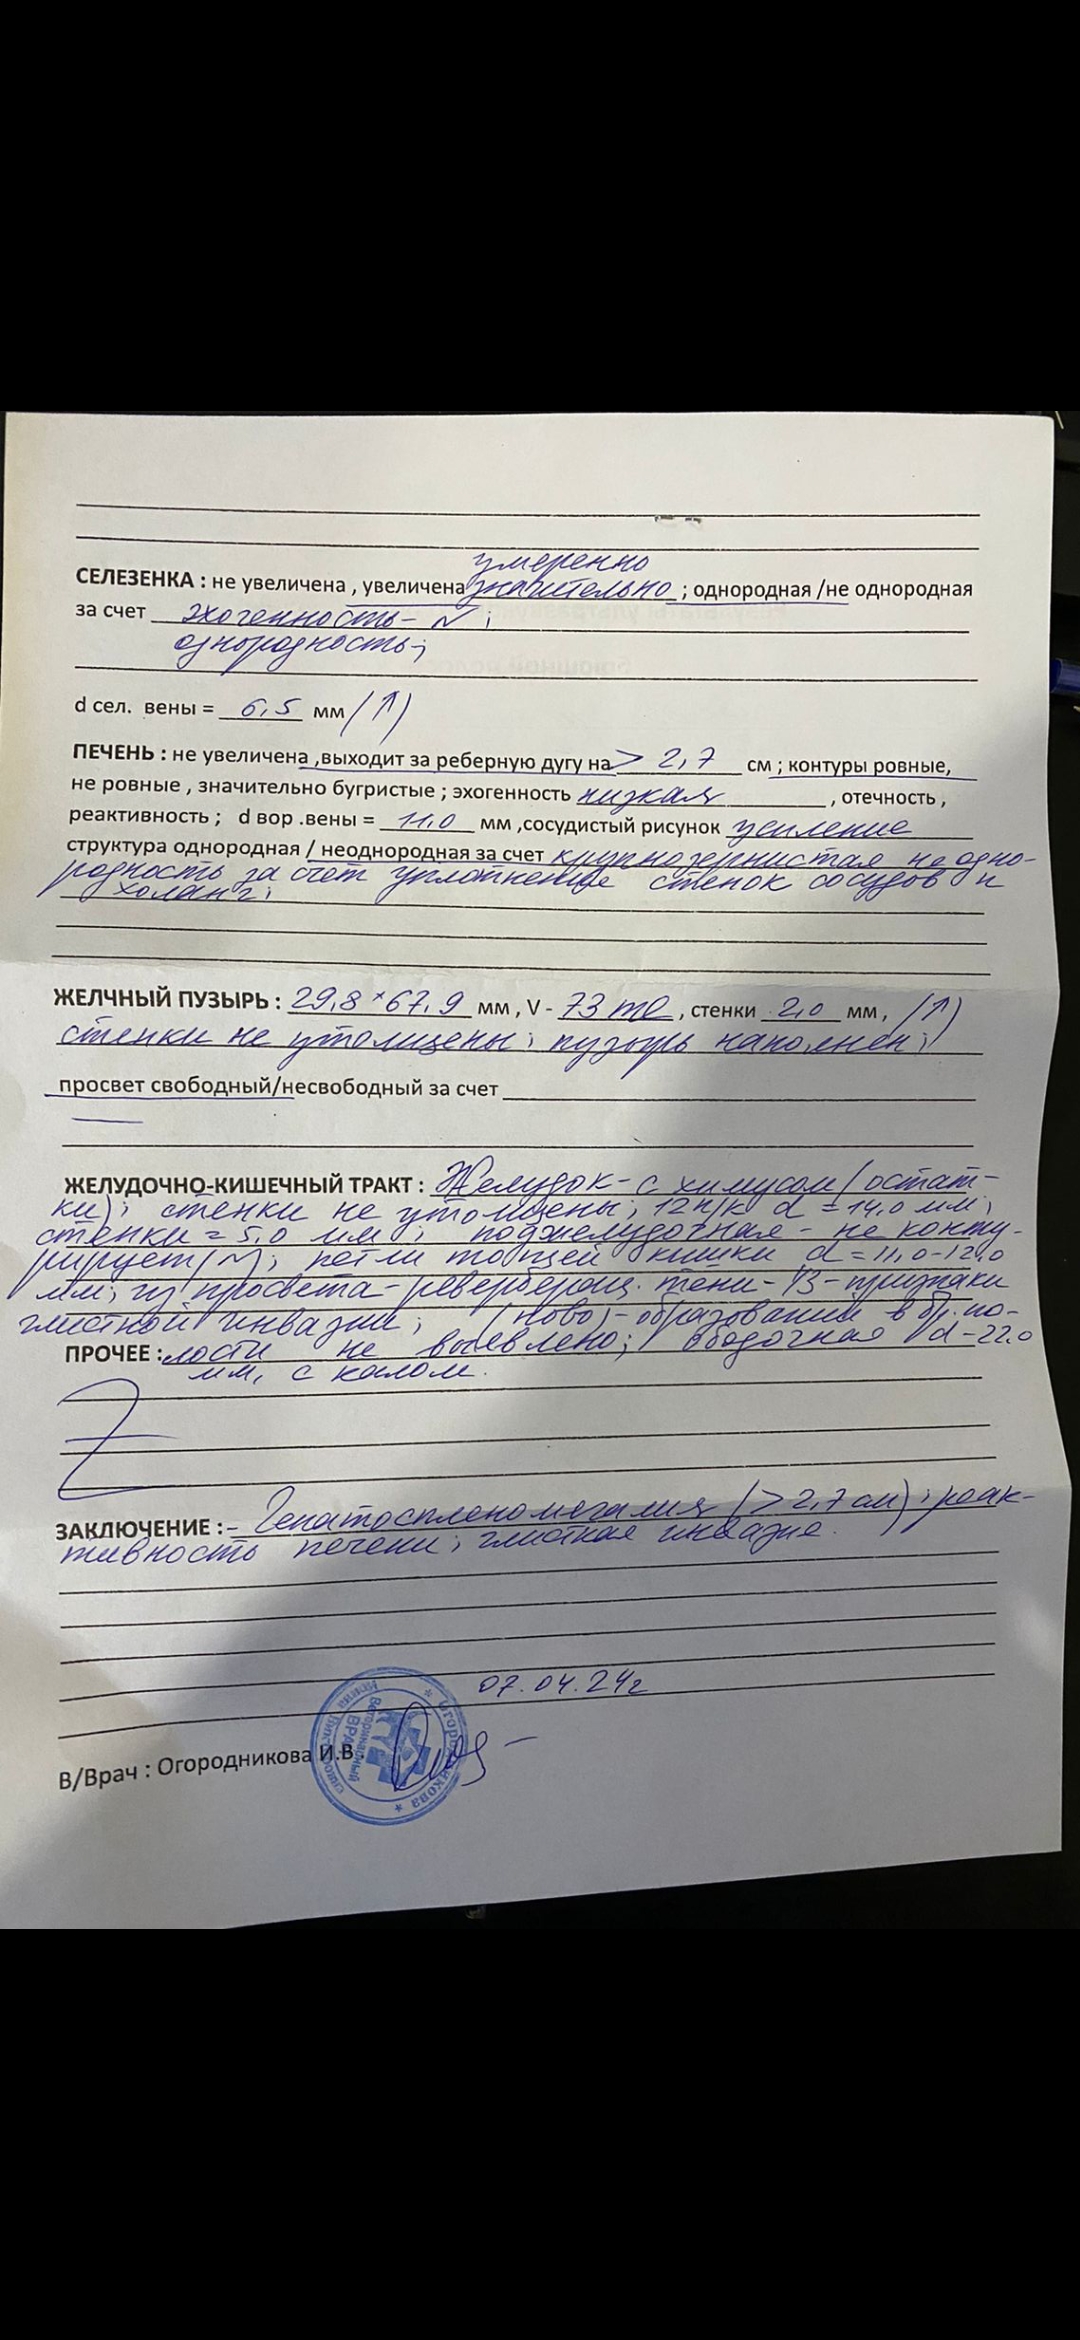 умеренно
СЕЛЕЗЕНКА : не увеличена , увеличена значительно ; однородная /не однородная
за счет эхогенность – N ;
однородность;
d сел. вены = 6,5 мм (↑)
ПЕЧЕНЬ : не увеличена ,выходит за реберную дугу на > 2,7 см ; контуры ровные,
не ровные , значительно бугристые ; эхогенность низкая , отечность ,
реактивность ; d вор .вены = 11,0 мм ,сосудистый рисунок усиление
структура однородная / неоднородная за счет крупнозернистая неодно-
родность за счёт уплотнение стенок сосудов и
холанг;
ЖЕЛЧНЫЙ ПУЗЫРЬ : 29,8 × 67,9 мм , V - 73 ml , стенки 2,0 мм , (↑)
стенки не утолщены ; пузырь наполнен ;
просвет свободный/несвободный за счет
ЖЕЛУДОЧНО-КИШЕЧНЫЙ ТРАКТ : Желудок - с химусом (остат-
ки) ; стенки не утолщены ; 12п/к d = 14,0 мм ;
стенки = 5,0 мм ; поджелудочная - не конту-
рирует (N) ; петли тощей кишки d = 11,0-12,0
мм ; из просвета - реверберац. тени - УЗ - признаки
глистной инвазии ; (ново) - образований в бр. по-
ПРОЧЕЕ : лости не выявлено ; ободочная d - 22,0
мм, с калом.
ЗАКЛЮЧЕНИЕ : - Гепатоспленомегалия (> 2,7 см) ; реак-
тивность печени ; глистная инвазия.
07.04.24г
В/Врач : Огородникова И.В.
Огородникова
Ветеринарный
ВРАЧ